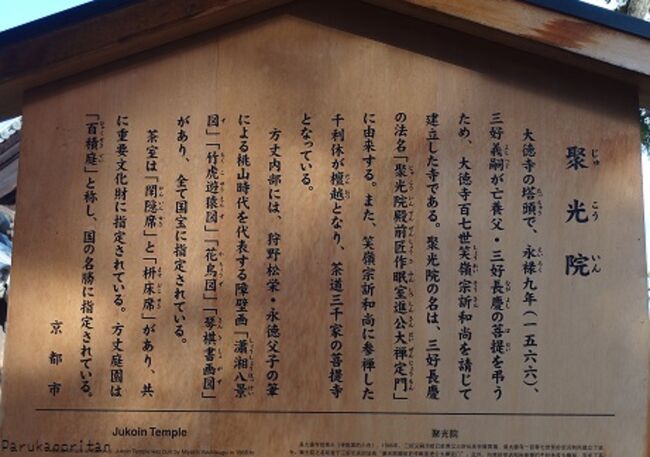 聚光院
じゅこういん
大徳寺の塔頭で、永禄九年(一五六六)、
三好義嗣が亡養父・三好長慶の菩提を弔う
ため、大徳寺百七世笑嶺宗訢和尚を請じて
建立した寺である。聚光院の名は、三好長慶
の法名「聚光院殿前匠作眠室進公大禅定門」
に由来する。また、笑嶺宗訢和尚に参禅した
千利休が檀越となり、茶道三千家の菩提寺
となっている。
方丈内部には、狩野松栄・永徳父子の筆
による桃山時代を代表する障壁画「瀟湘八景
図」「竹虎遊猿図」「花鳥図」「琴棋書画図」
があり、全て国宝に指定されている。
茶室は「閑隠席」と「枡床席」があり、共
に重要文化財に指定されている。方丈庭園は
「百積庭」と称し、国の名勝に指定されている。
京都市
Jukoin Temple
聚光院
Parukaoritan